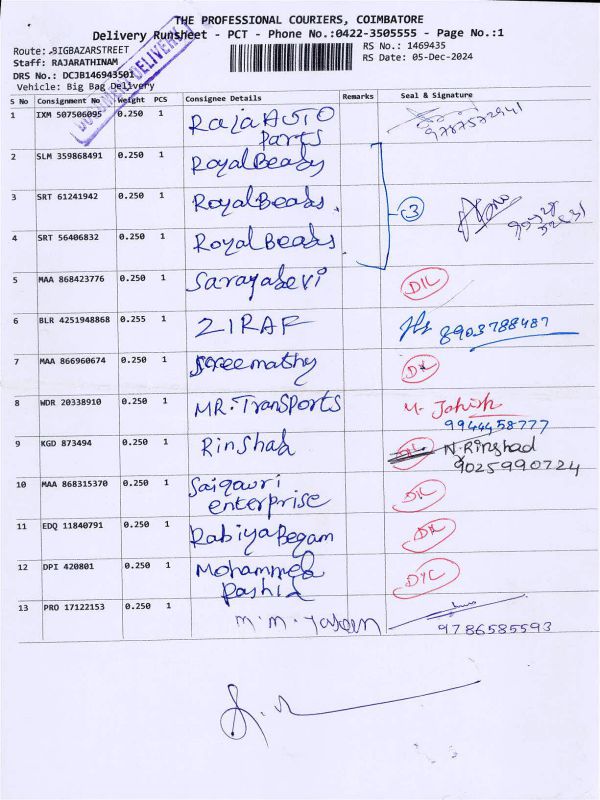 THE PROFESSIONAL COURIERS, COIMBATORE
Delivery Runsheet - PCT - Phone No.:0422-3505555 - Page No.:1
Route: BIGBAZARSTREET RS No.: 1469435
Staff: RAJARATHINAM RS Date: 05-Dec-2024
DRS No.: DCJB146943501
Vehicle: Big Bag Delivery
S No Consignment No Weight PCS Consignee Details Remarks Seal & Signature
1 IXM 507506095 0.250 1 Raja AUTO
Parts 9787572941
2 SLM 359868491 0.250 1 Royal Beads
3 SRT 61241942 0.250 1 Royal Beads. 3
4 SRT 56406832 0.250 1 Royal Beads.
5 MAA 868423776 0.250 1 Sarayadevi D/L
6 BLR 4251948868 0.255 1 ZIRAF 8903788487
7 MAA 866960674 0.250 1 Sreemathy
8 WDR 20338910 0.250 1 MR. Transports M. Johish
9944458777
9 KGD 873494 0.250 1 Rinshad N. Rinshad
9025990724
10 MAA 868315370 0.250 1 Saigauri
enterprise
11 EDQ 11840791 0.250 1 Rabiya Begam
12 DPI 420801 0.250 1 Mohammed
Rashid
13 PRO 17122153 0.250 1 M.M. Yaseen
9786585593